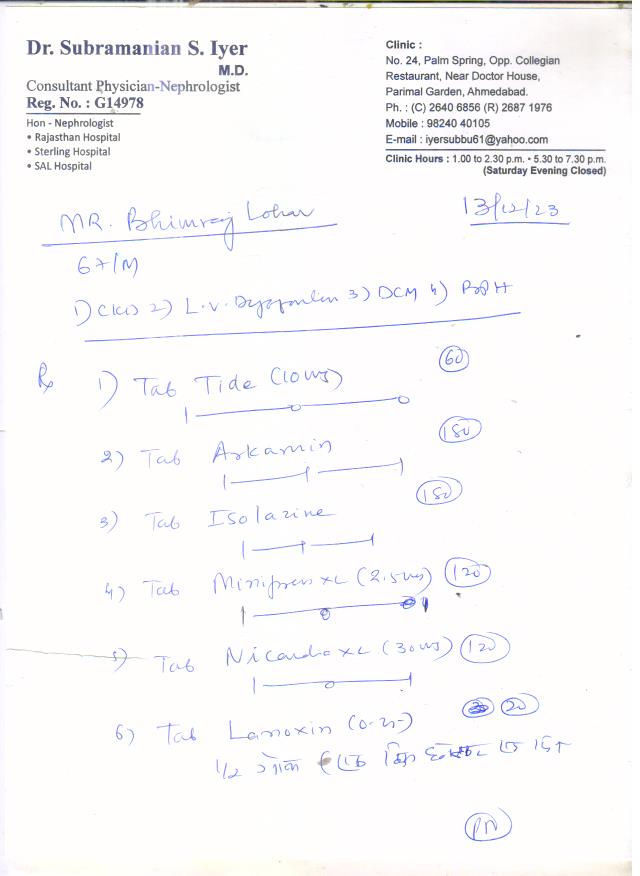 Dr. Subramanian S. Iyer
M.D.
Consultant Physician-Nephrologist
Reg. No. : G14978
Hon - Nephrologist
• Rajasthan Hospital
• Sterling Hospital
• SAL Hospital
Clinic :
No. 24, Palm Spring, Opp. Collegian
Restaurant, Near Doctor House,
Parimal Garden, Ahmedabad.
Ph. : (C) 2640 6856 (R) 2687 1976
Mobile : 98240 40105
E-mail : iyersubbu61@yahoo.com
Clinic Hours : 1.00 to 2.30 p.m. • 5.30 to 7.30 p.m.
(Saturday Evening Closed)
MR. Bhimraj Lohar
13/12/23
67/M
1) CKD 2) L.V. Dysfunction 3) DCM 4) BPH
Rx
1) Tab Tide (10mg) 60
1 — 0 — 0
2) Tab Arkamin 180
1 — 1 — 1
3) Tab Isolazine 180
1 — 1 — 1
4) Tab Minipress XL (2.5mg) 120
1 — 0 — 1
5) Tab Nicardia XL (30mg) 120
1 — 0 — 1
6) Tab Lanoxin (0.25) 20
1/2